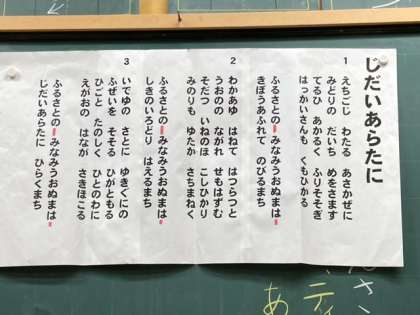 じだいあらたに
1
えちごじ わたる あさかぜに
みどりの だいち めをさます
てるひ あかるく ふりそそぎ
はっかいさんも くもひかる
ふるさとの みなみうおぬまは
きぼうあふれて のびるまち
2
わかあゆ はねて はつらつと
うおのの ながれ せもはずむ
そだつ いねのほ こしひかり
みのりも ゆたか さちまねく
ふるさとの みなみうおぬまは
しきのいろどり はえるまち
3
いでゆの さとに ゆきぐにの
ふぜいを そそる ひがともる
ひごと たのしく ひとのわに
えがおの はなが さきほこる
ふるさとの みなみうおぬまは
じだいあらたに ひらくまち
さ
ディ
あ